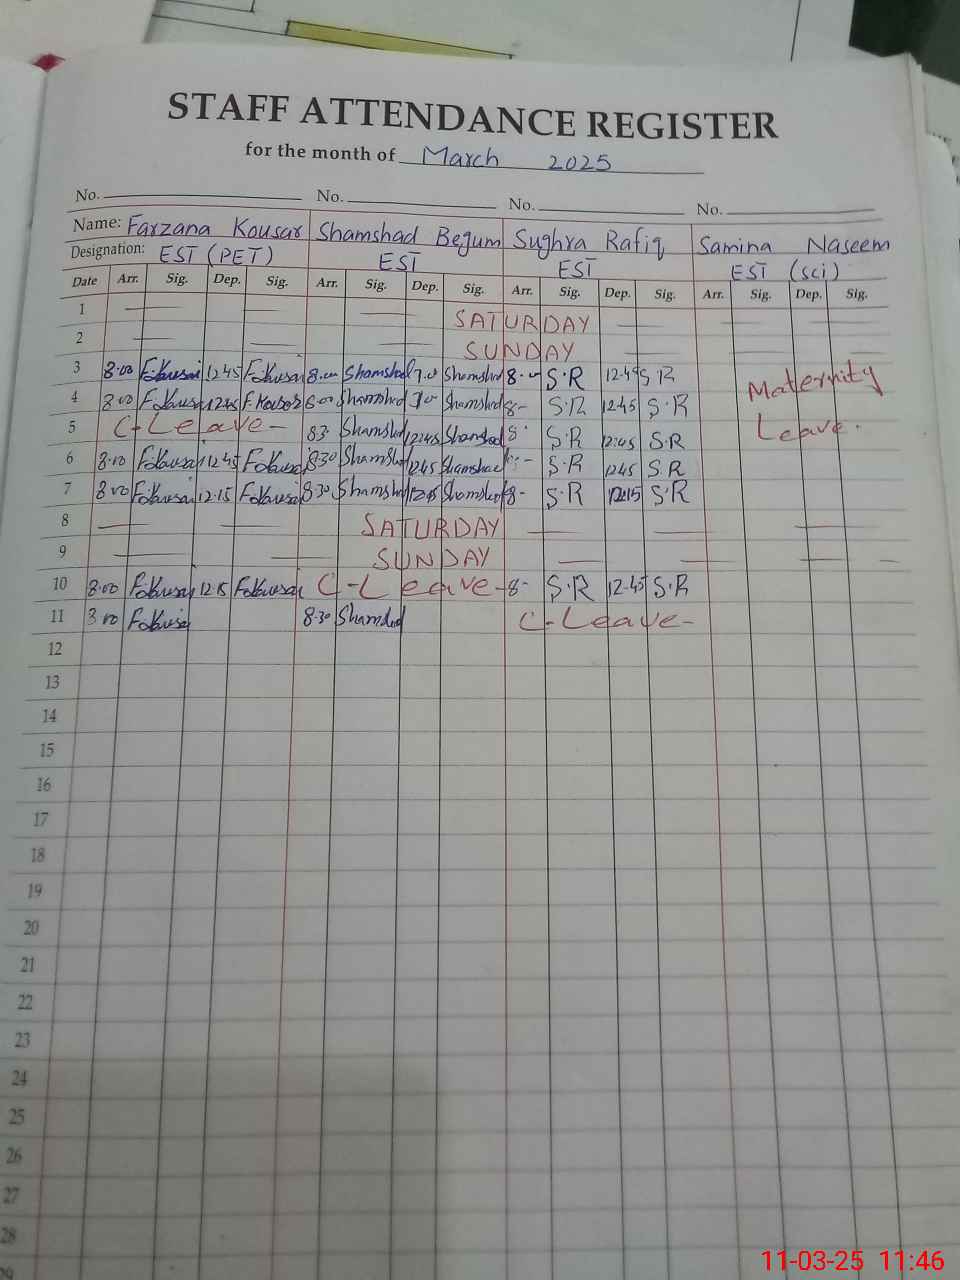 STAFF ATTENDANCE REGISTER
for the month of March 2025
No. No. No. No.
Name: Farzana Kousar Shamshad Begum Sughra Rafiq Samina Naseem
Designation: EST (PET) EST EST EST (sci)
Date Arr. Sig. Dep. Sig. Arr. Sig. Dep. Sig. Arr. Sig. Dep. Sig. Arr. Sig. Dep. Sig.
1 SATURDAY
2 SUNDAY
3 8.00 F.Kousar 12.45 F.Kousar 8.00 Shamshad Shamshad 8- S.R 12.45 S.R Maternity
4 8.00 F.Kousar 12.45 F.Kousar 8.00 Shamshad Shamshad 8- S.R 12.45 S.R
5 C-Leave- 8.30 Shamshad 12:45 Shamshad 8- S.R 12:45 S.R Leave.
6 8.00 F.Kousar 12.45 F.Kousar 8.30 Shamshad 12.45 Shamshad S.R 12.45 S.R
7 8.00 F.Kousar 12.15 F.Kousar 8.30 Shamshad 12.15 Shamshad 8- S.R 12.15 S.R
8 SATURDAY
9 SUNDAY
10 8.00 F.Kousar 12.15 F.Kousar C-Leave- 8- S.R 12.45 S.R
11 8.00 F.Kousar 8.30 Shamshad C-Leave-
12
13
14
15
16
17
18
19
20
21
22
23
24
25
26
27
28
29
11-03-25 11:46